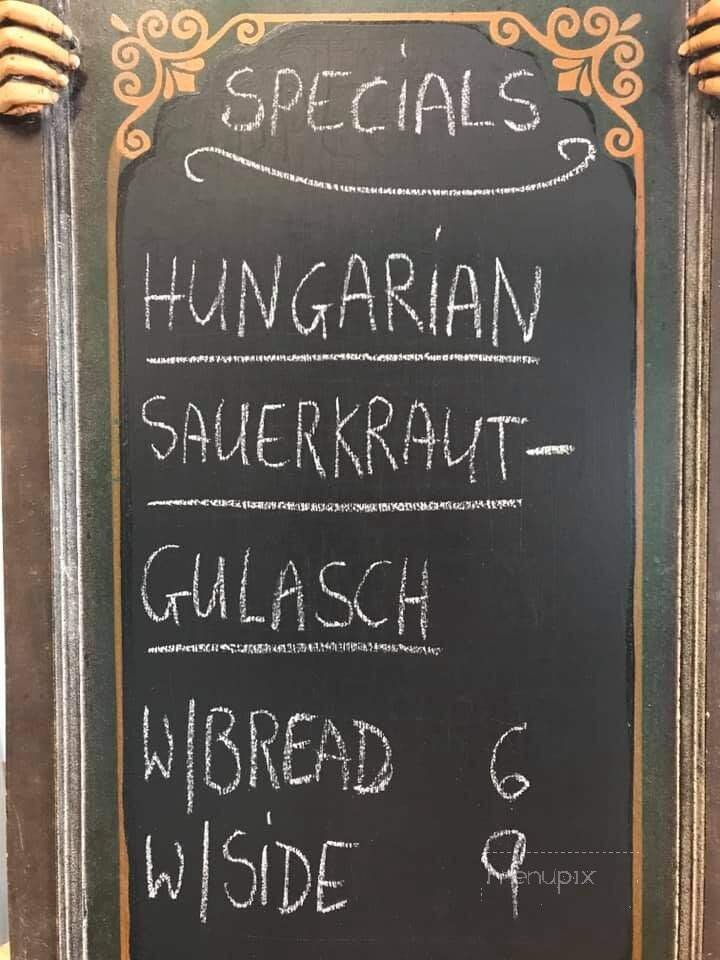 SPECiALS
HUNGARiAN
SAUERKRAUT-
GULASCH
W/BREAD 6
W/SiDE 9
menupix